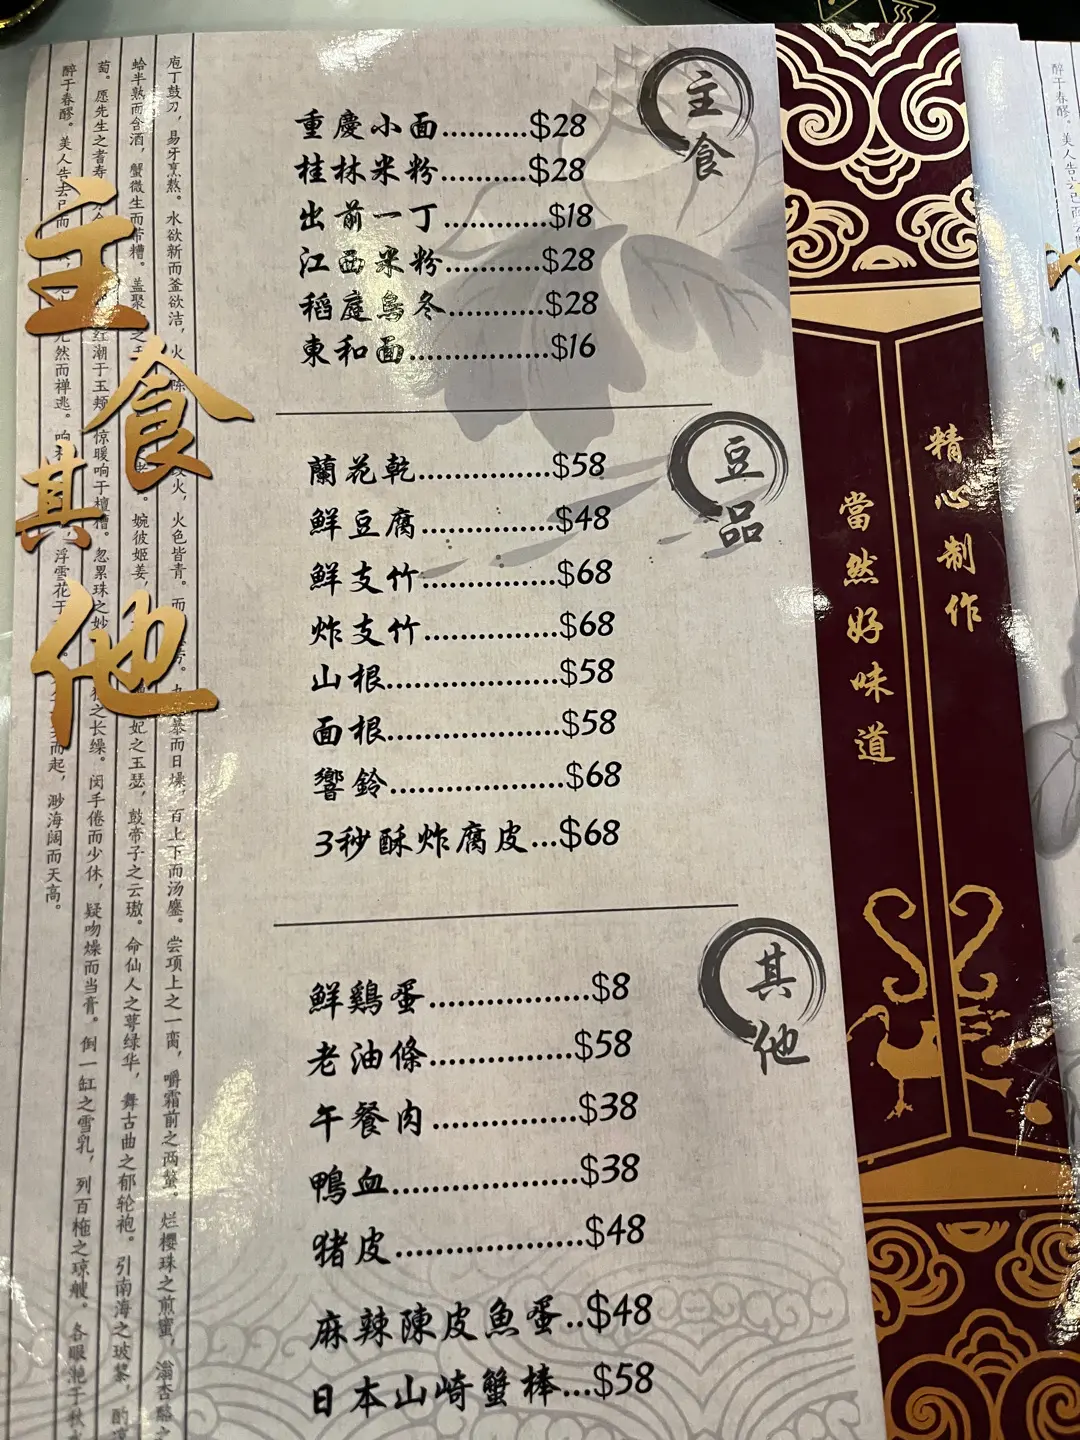 主食
其他
主食
重慶小面..........$28
桂林米粉..........$28
出前一丁............$18
江西米粉...........$28
稻庭烏冬...........$28
東和面................$16
豆品
蘭花乾...............$58
鮮豆腐...............$48
鮮支竹...............$68
炸支竹...............$68
山根...................$58
面根...................$58
響鈴...................$68
3秒酥炸腐皮...$68
其他
鮮鷄蛋..................$8
老油條................$58
午餐肉................$38
鴨血....................$38
猪皮....................$48
麻辣陳皮魚蛋..$48
日本山崎蟹棒...$58
精心制作
當然好味道
庖丁鼓刀，易牙烹熬。水欲新而釜欲洁，火
火，火色皆青。
九暴而日燥，百上下而汤鏖。尝项上之一脔，嚼霜前之两螯。烂樱珠之煎蜜，滃杏酪之
蛤半熟而含酒，蟹微生而带糟。盖聚
婉彼姬姜，
妃之玉瑟，鼓帝子之云璈。命仙人之萼绿华，舞古曲之郁轮袍。引南海之玻黎，酌凉
萄。愿先生之耆寿
红潮于玉颊，惊暖响于檀槽。忽累珠之妙
之长缲。闵手倦而少休，疑吻燥而当膏。倒一缸之雪乳，列百柂之琼艘。各眼滟于秋水
醉于春醪。美人告去已而
兀然而禅逃。响
浮雪花于
而起，渺海阔而天高。